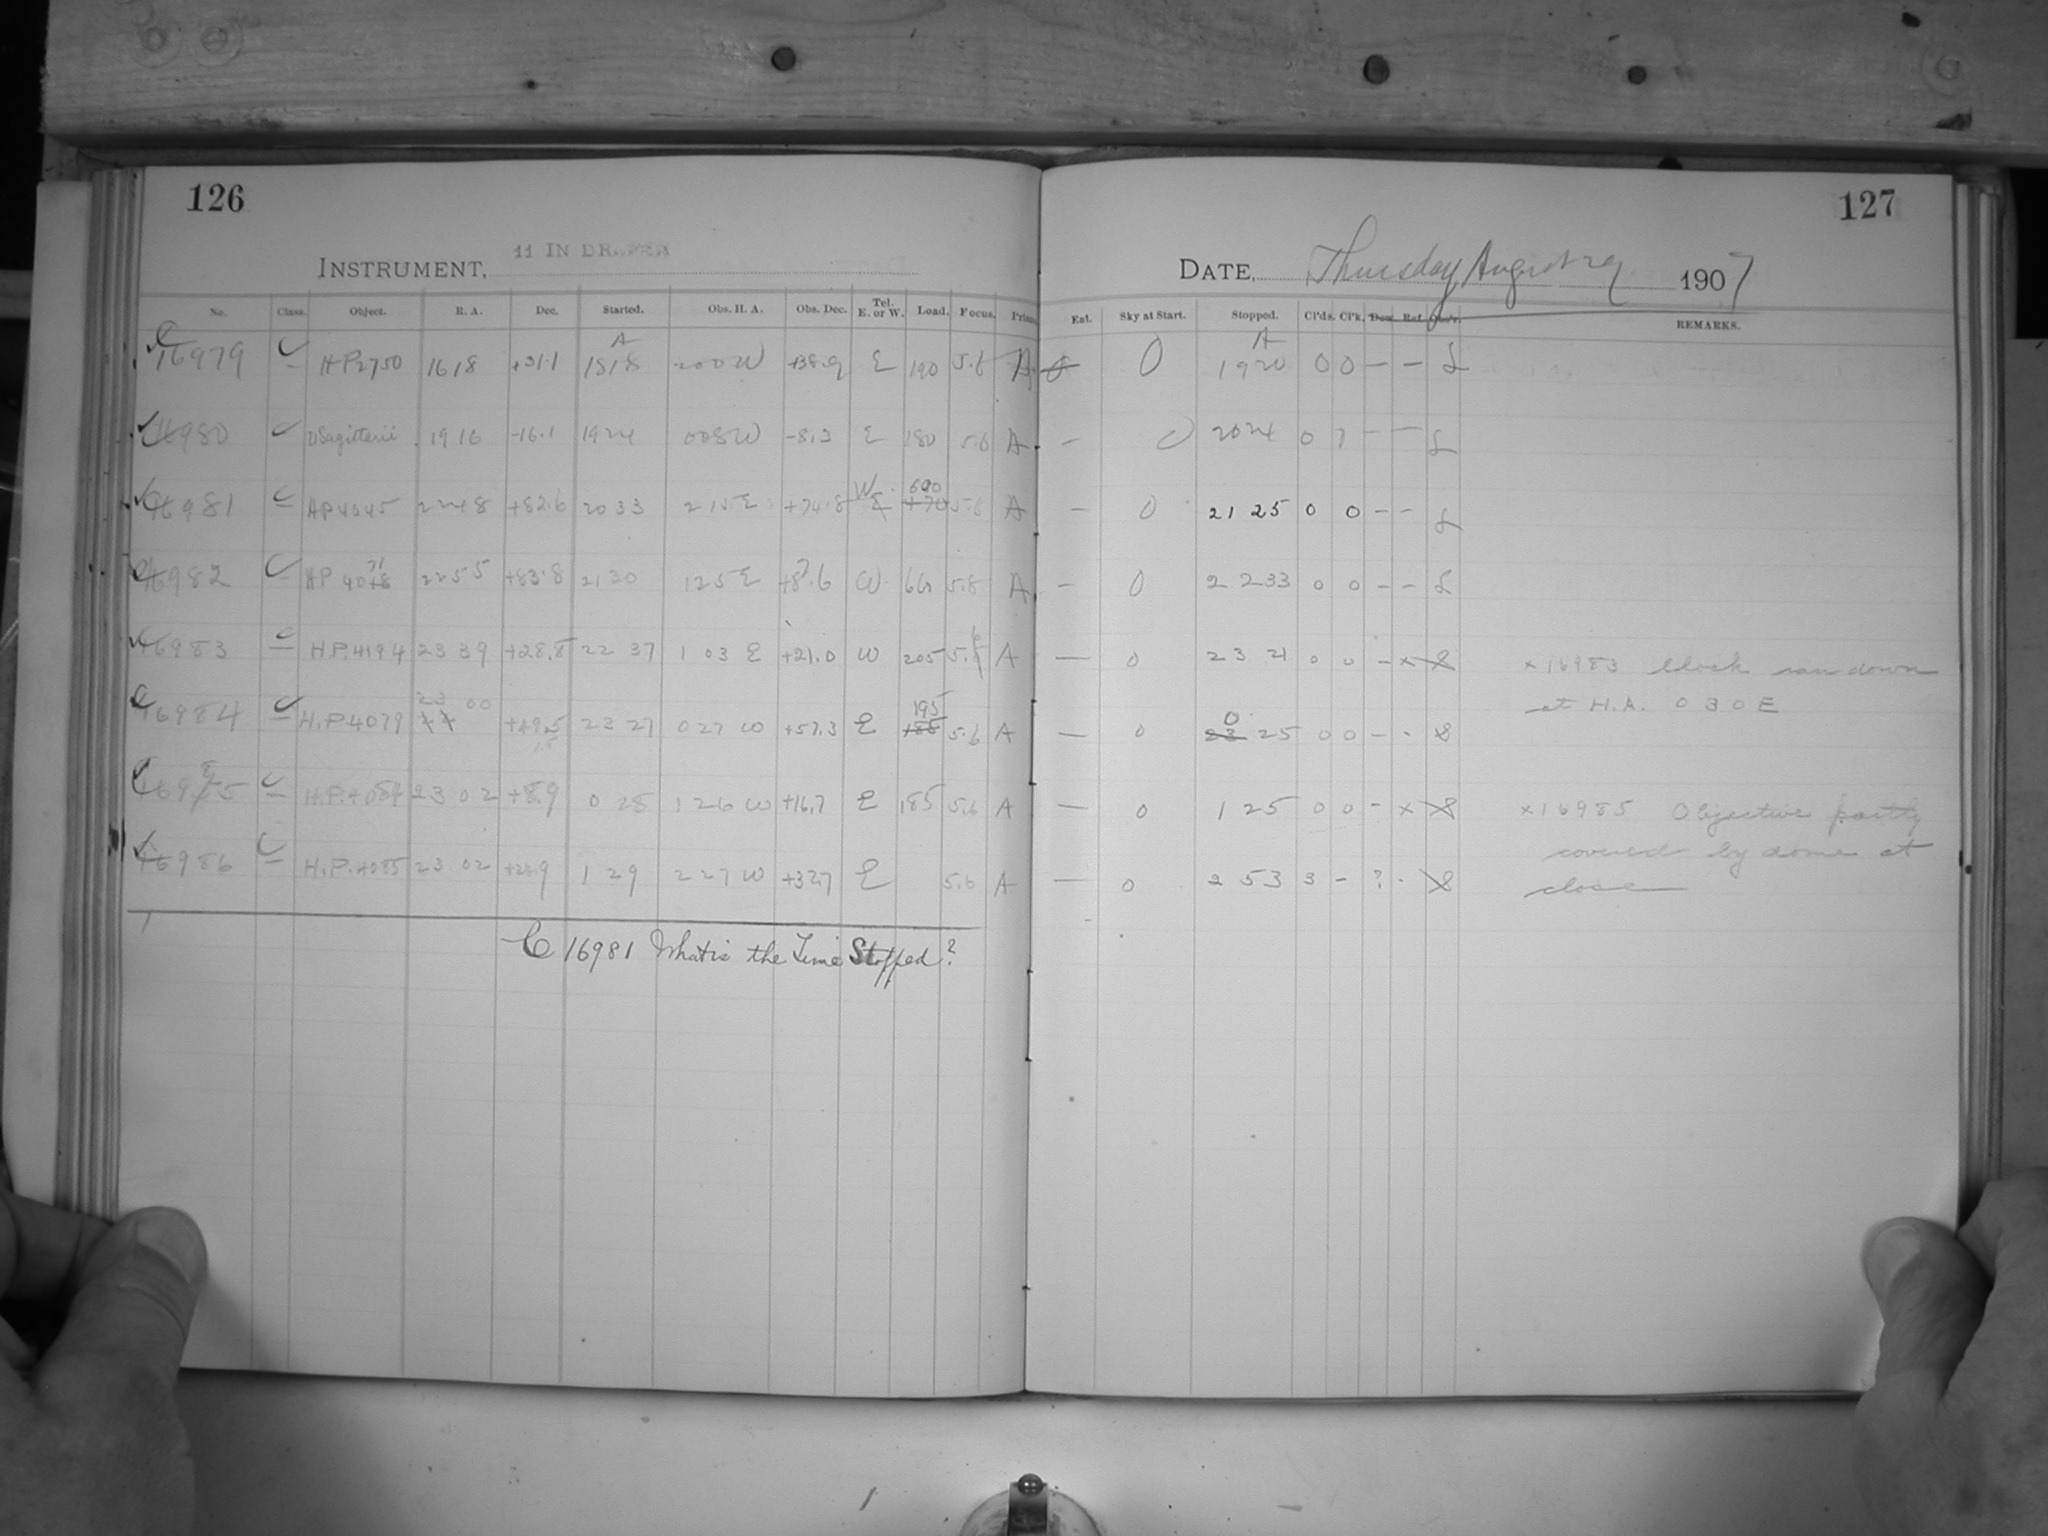 126
INSTRUMENT, 11 IN DRAPER
No. Class. Object. R. A. Dec. Started. Obs. H. A. Obs. Dec. Tel. E. or W. Load. Focus. Prism
C 16979 C HP2750 1618 +31.1 A 1818 200W +38.9 E 190 5.6 A
C16980 C υSagittarii 1916 -16.1 1924 008W -8.3 E 180 5.6 A
C16981 C HP4045 2248 +82.6 2033 215E +74.8 W E 690 5.6 A
C16982 C HP 40 2255 +83.8 2130 125E W 660 5.8 A
C16983 C H.P.4194 23 39 +28.8 22 37 1 03 E +21.0 W 205 5.6 A
C16984 C H.P.4079 23 00 +49.5 23 27 0 27 W +57.3 E 195 5.6 A
C16985 C H.P.4084 23 02 +8.9 0 28 1 26 W +16.7 E 185 5.6 A
C16986 C H.P.4085 23 02 1 29 2 27 W +32.7 E 5.6 A
C 16981 What is the Time Stopped?
127
DATE, Thursday August 29 1907
Ent. Sky at Start. Stopped. Cl'ds. Cl'k. Dew. Ref. Obs'r. REMARKS.
0 A 1920 0 0 — — L
— 0 2024 0 7 — — L
— 0 21 25 0 0 — — L
— 0 2 233 0 0 — — L
— 0 23 21 0 0 — x x 16983 Clock ran down
at H.A. 0 30 E
— 0 0 23 25 0 0 — ·
— 0 1 25 0 0 — x x 16985 Objective partly
covered by dome at
— 0 2 53 3 — ? · close